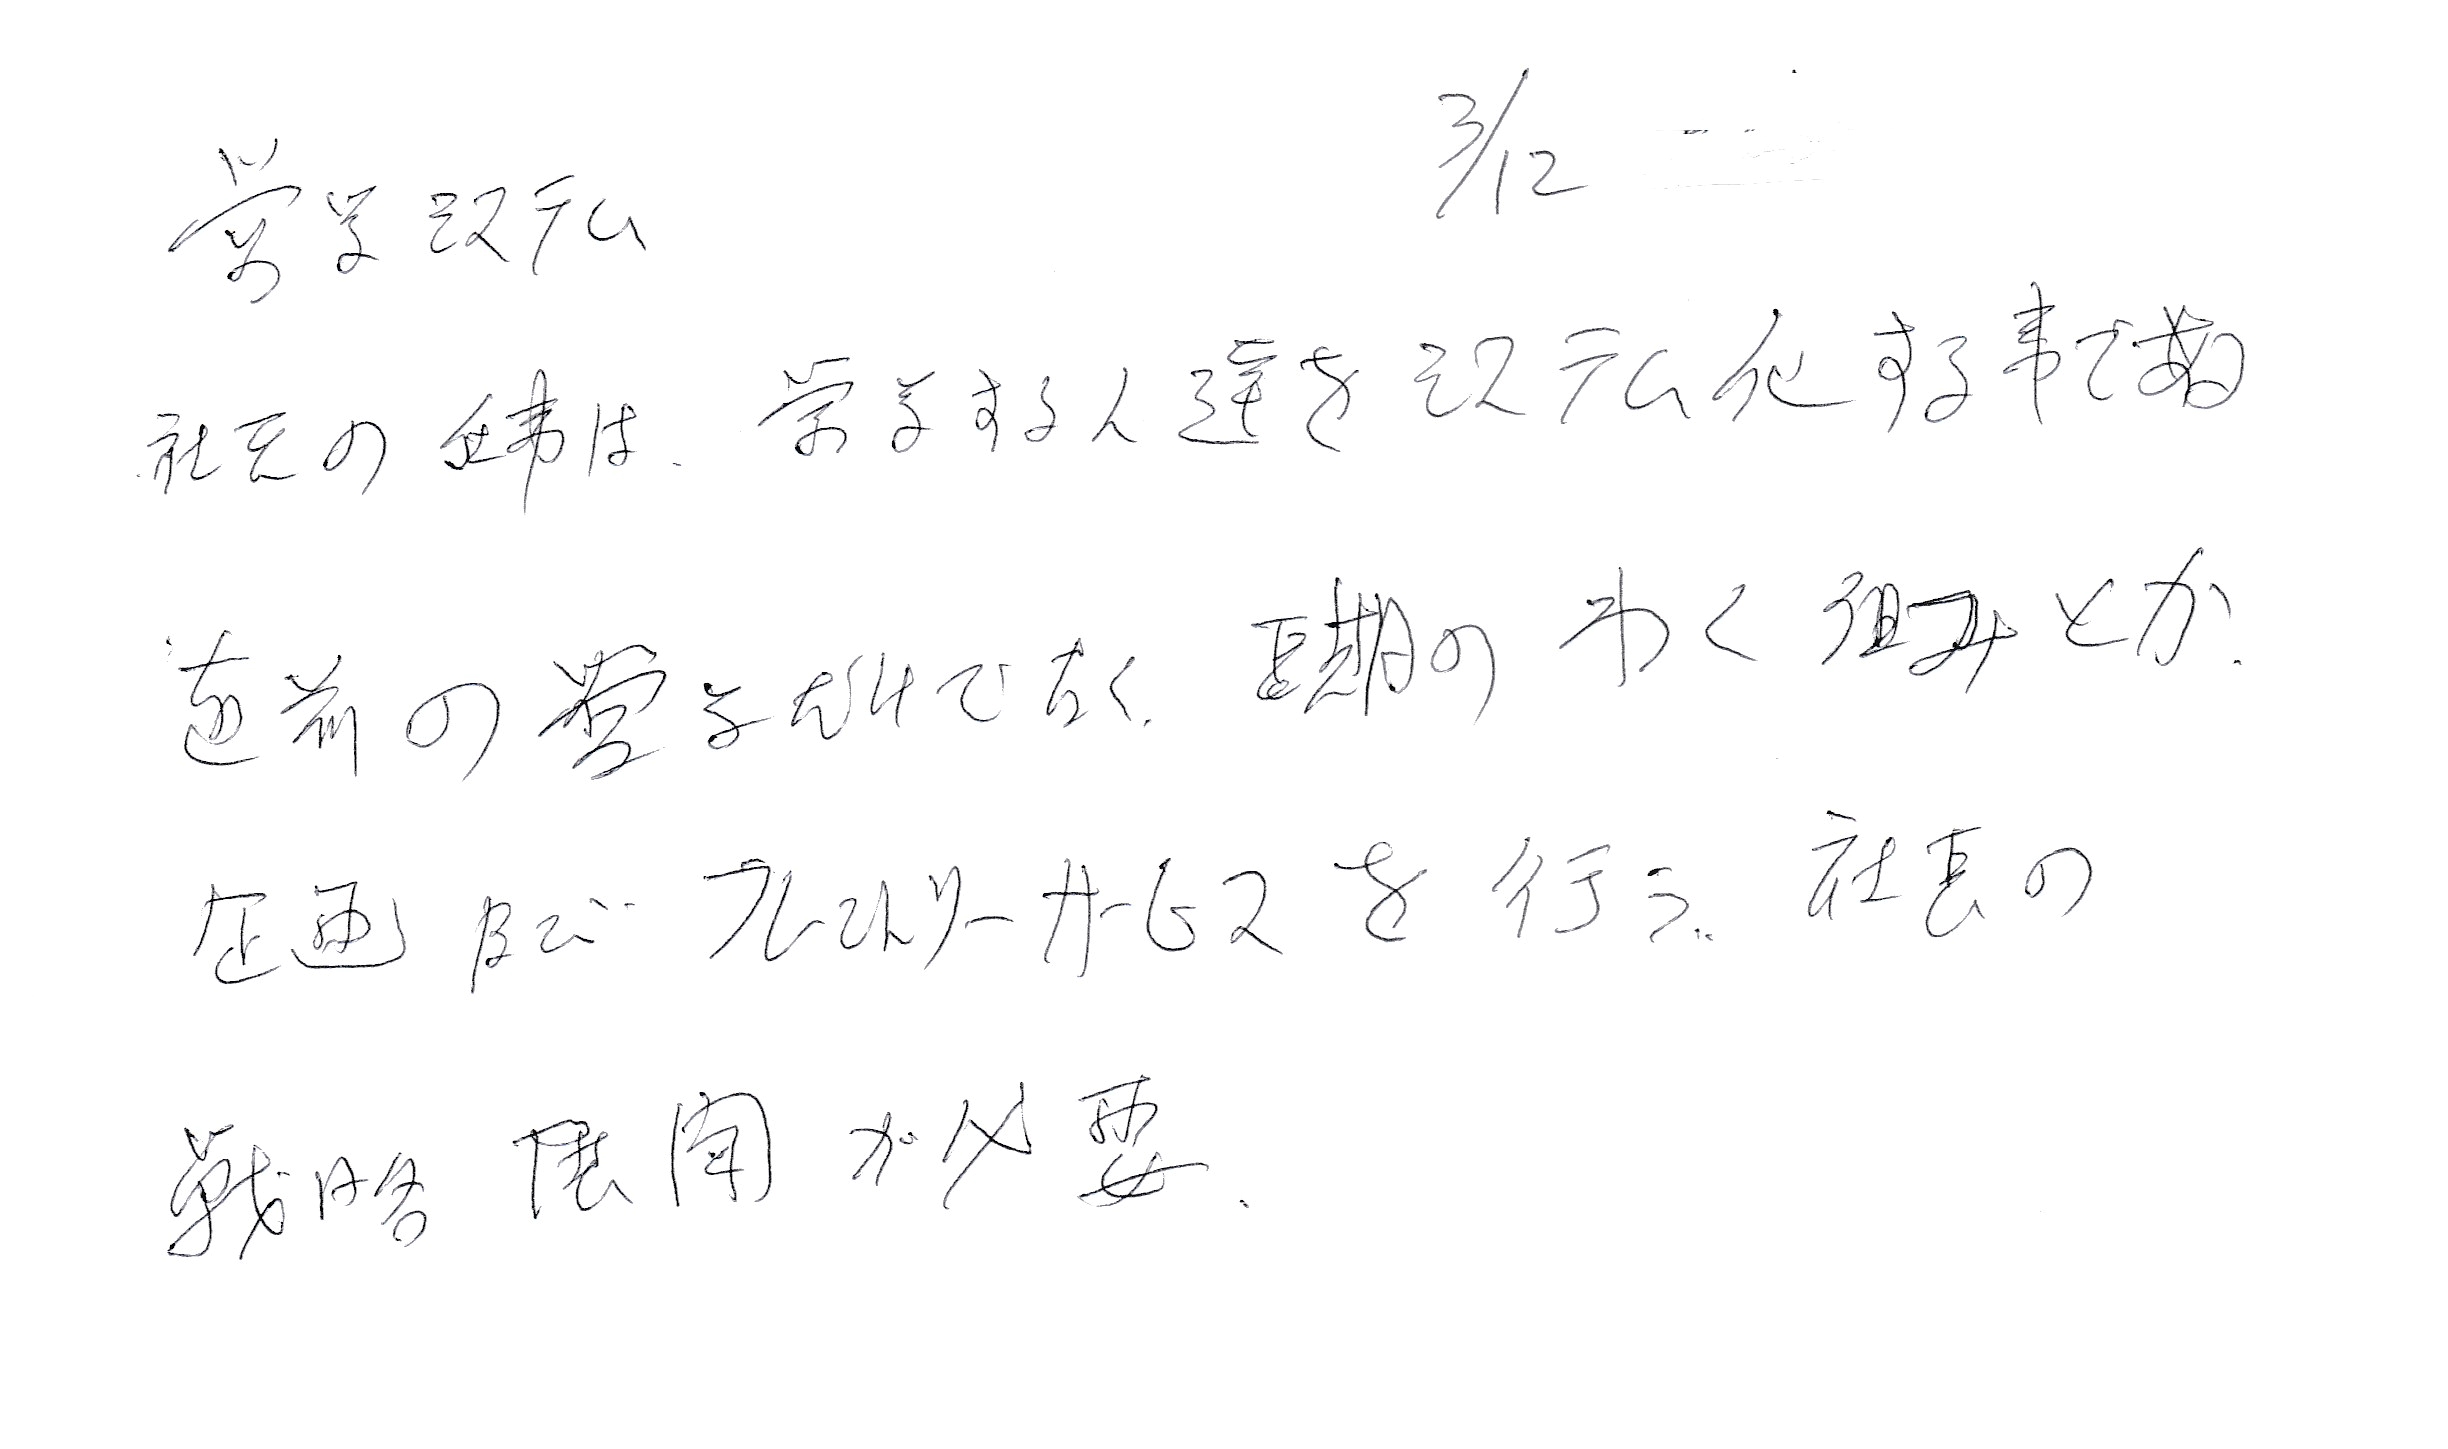 3/12
営業システム
社長の仕事は、営業する人達をシステム化する事である
目前の営業だけでなく、長期のわく組みとか、
企画及び フレントリーサービスを行う、社長の
戦略 展開が必要、